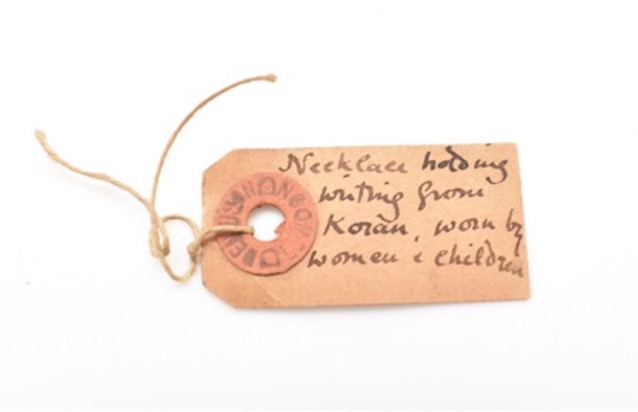 Necklace holding
writing from
Koran, worn by
women & children